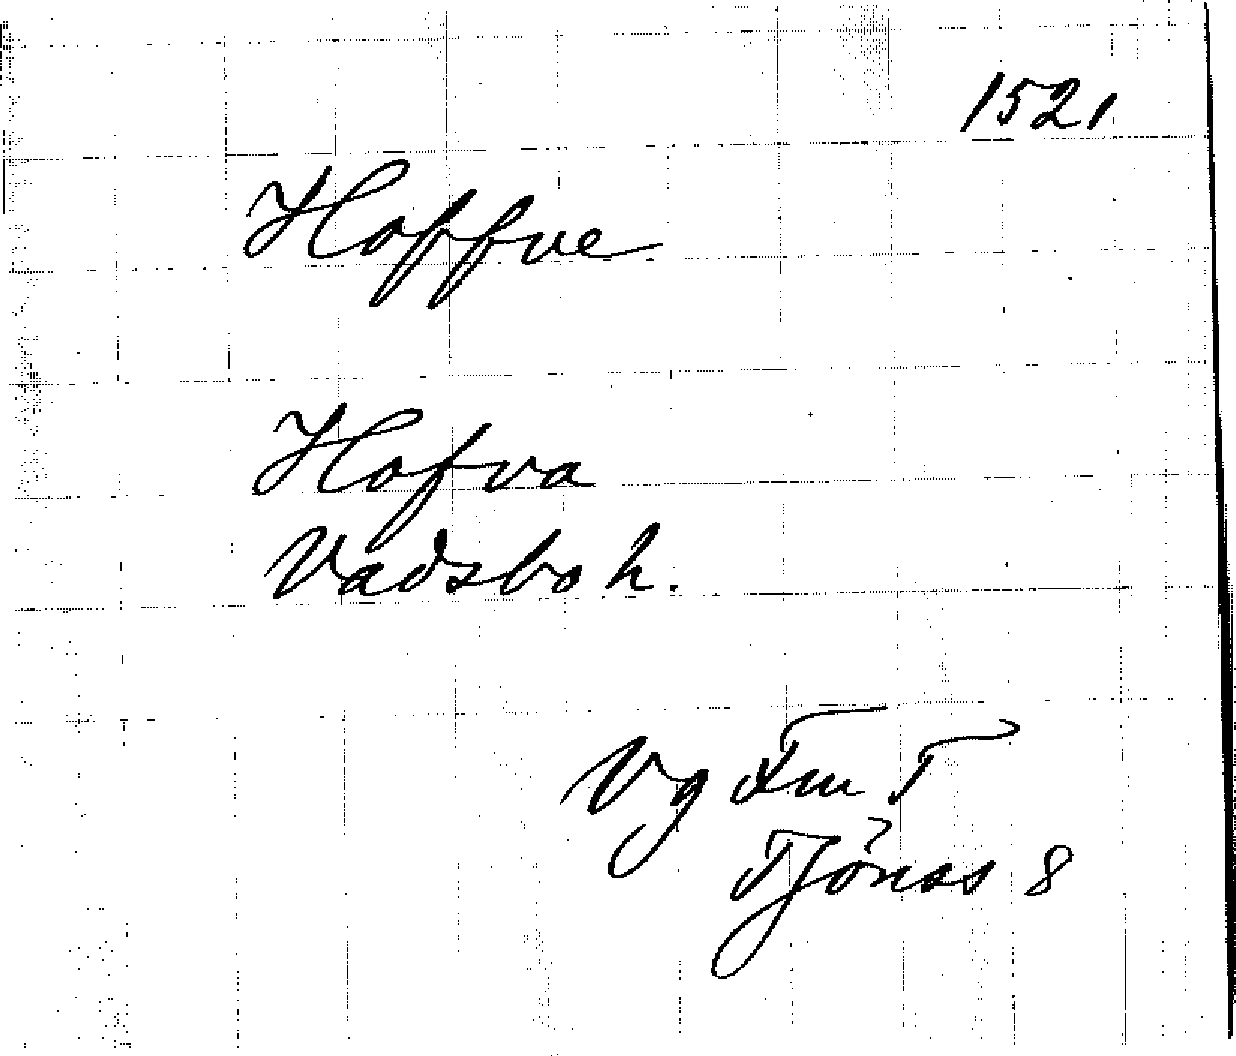 1521
Hoffve
Hofva
Vadsbo h.
Vg Fm T
Tjönas 8